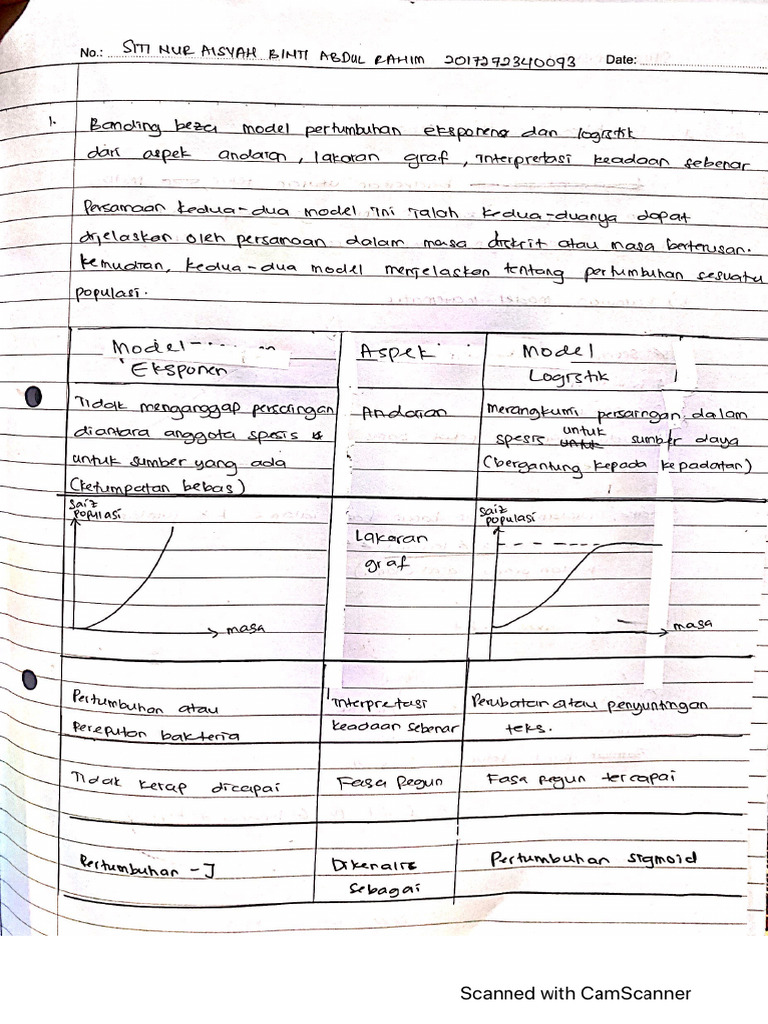 No.: SITI NUR AISYAH BINTI ABDUL RAHIM 2017292340093 Date:
1. Banding beza model pertumbuhan eksponen dan logistik
dari aspek andaian, lakaran graf, interpretasi keadaan sebenar
Persamaan kedua-dua model ini ialah kedua-duanya dapat
dijelaskan oleh persamaan dalam masa diskrit atau masa berterusan.
Kemudian, kedua-dua model menjelaskan tentang pertumbuhan sesuatu
populasi.
Model
Eksponen
Aspek
Model
Logistik
Tidak menganggap persaingan
diantara anggota spesis
untuk sumber yang ada
(ketumpatan bebas)
Andaian
Merangkumi persaingan dalam
spesis untuk sumber daya
(bergantung kepada kepadatan)
Saiz
populasi
masa
Lakaran
graf
Saiz
populasi
masa
Pertumbuhan atau
Pereputan bakteria
Interpretasi
keadaan sebenar
Perubatan atau penyuntingan
teks.
Tidak kerap dicapai
Fasa Pegun
Fasa pegun tercapai
Pertumbuhan -J
Dikenali
sebagai
Pertumbuhan sigmoid
Scanned with CamScanner